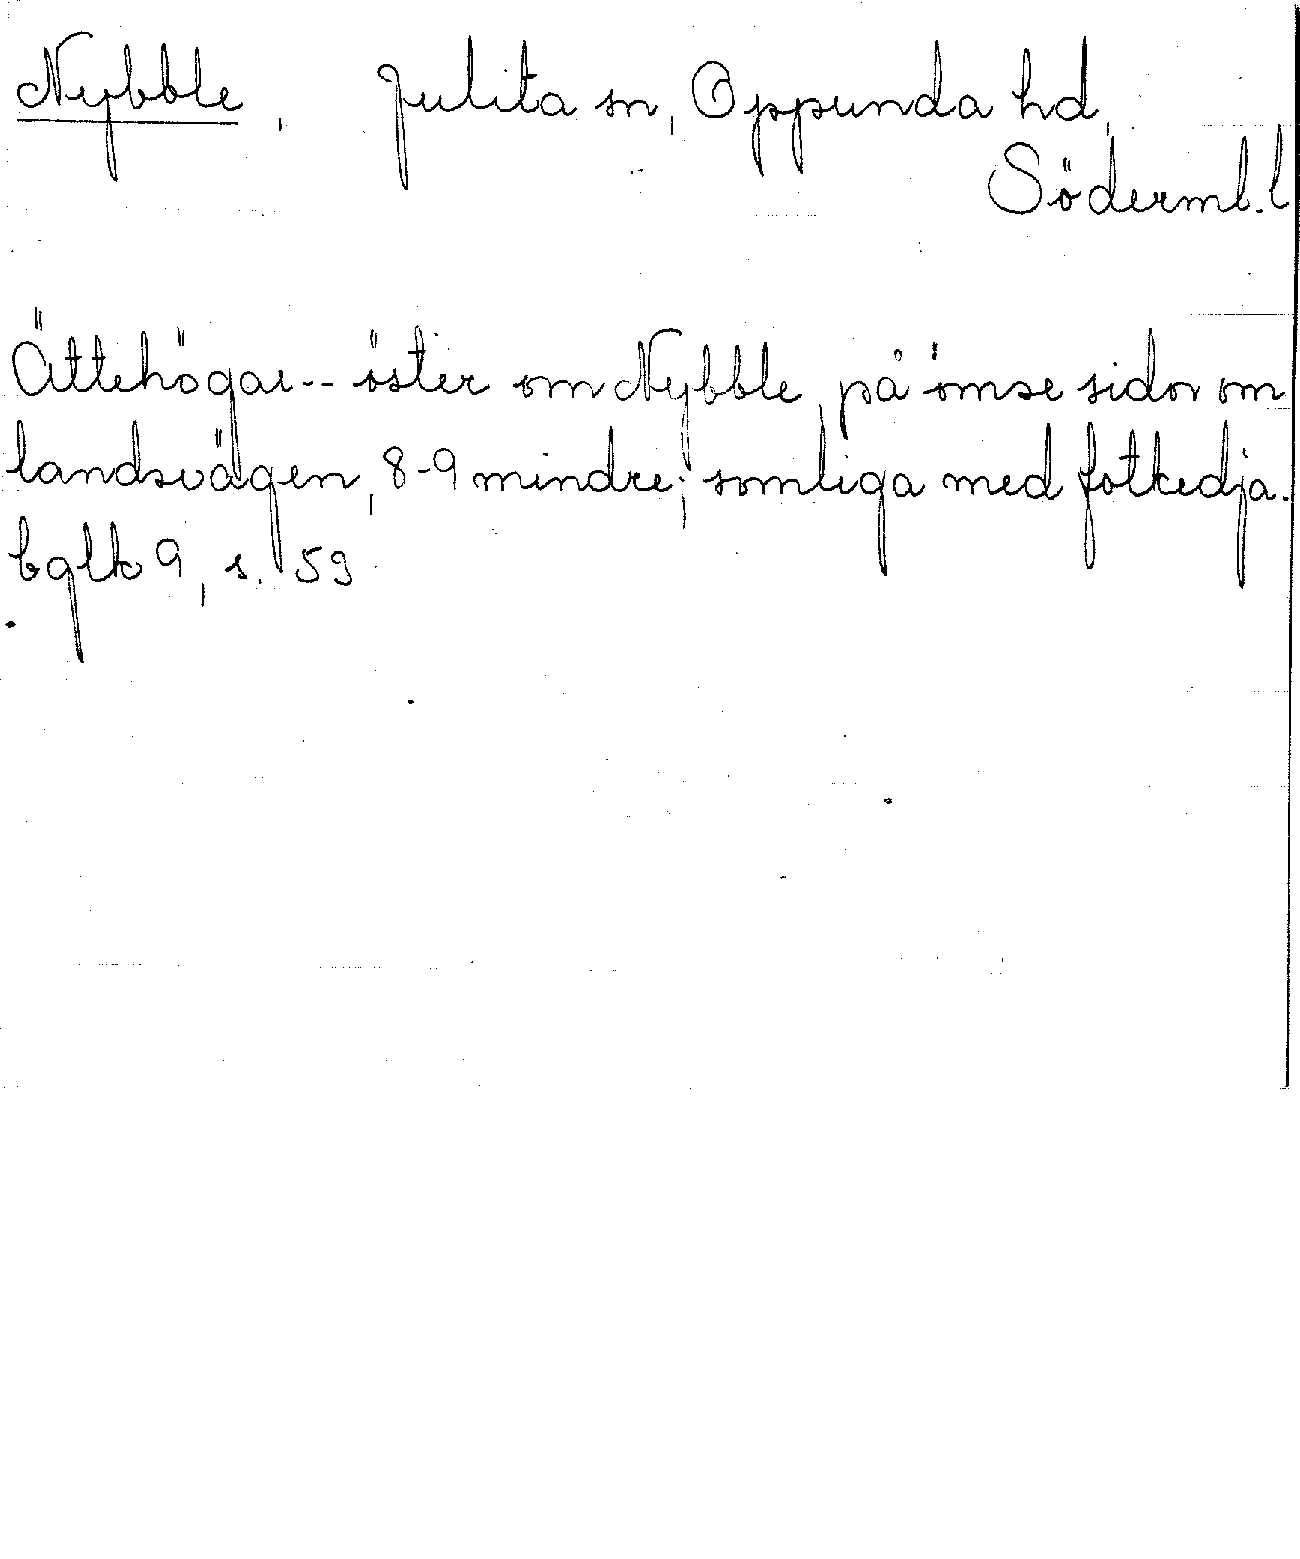 Nybble, Julita sn, Oppunda hd,
Söderml. l
Ättehögar -- öster om Nybble, på ömse sidor om
landsvägen, 8-9 mindre; somliga med fotkedja.
bglk 9, s. 53